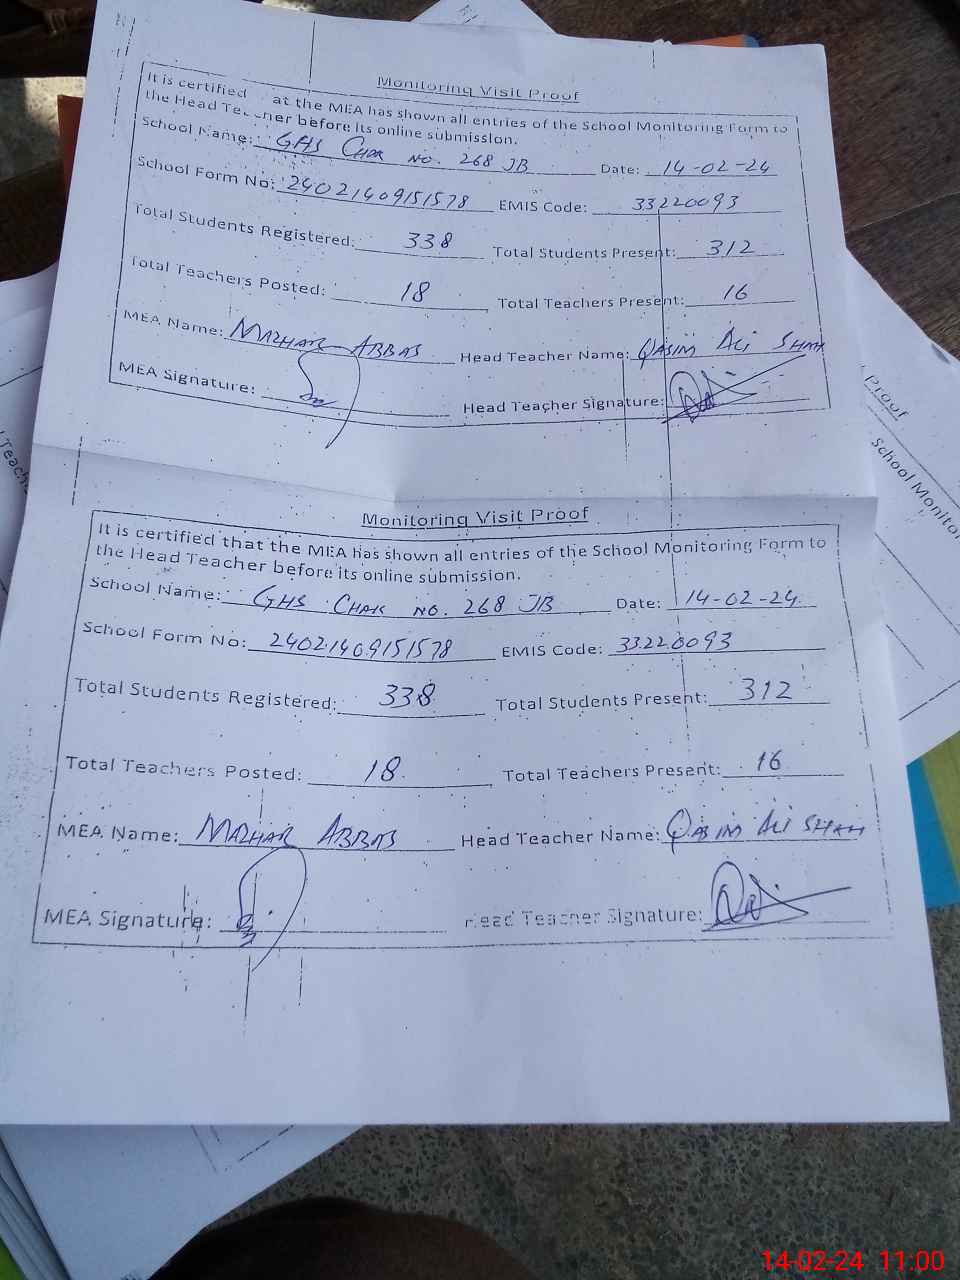 Monitoring Visit Proof
It is certified at the MEA has shown all entries of the School Monitoring Form to
the Head Teacher before its online submission.
School Name: GHS CHAK NO. 268 JB Date: 14-02-24
School Form No: 24021409151578 EMIS Code: 33220093
Total Students Registered: 338 Total Students Present: 312
Total Teachers Posted: 18 Total Teachers Present: 16
MEA Name: MAZHAR ABBAS Head Teacher Name: QASIM ALI SHAH
MEA Signature: Head Teacher Signature:
Monitoring Visit Proof
It is certified that the MEA has shown all entries of the School Monitoring Form to
the Head Teacher before its online submission.
School Name: GHS CHAK NO. 268 JB Date: 14-02-24
School Form No: 24021409151578 EMIS Code: 33220093
Total Students Registered: 338 Total Students Present: 312
Total Teachers Posted: 18 Total Teachers Present: 16
MEA Name: MAZHAR ABBAS Head Teacher Name: QASIM ALI SHAH
MEA Signature: Head Teacher Signature:
Proof
School Monito
Teach
14-02-24 11:00